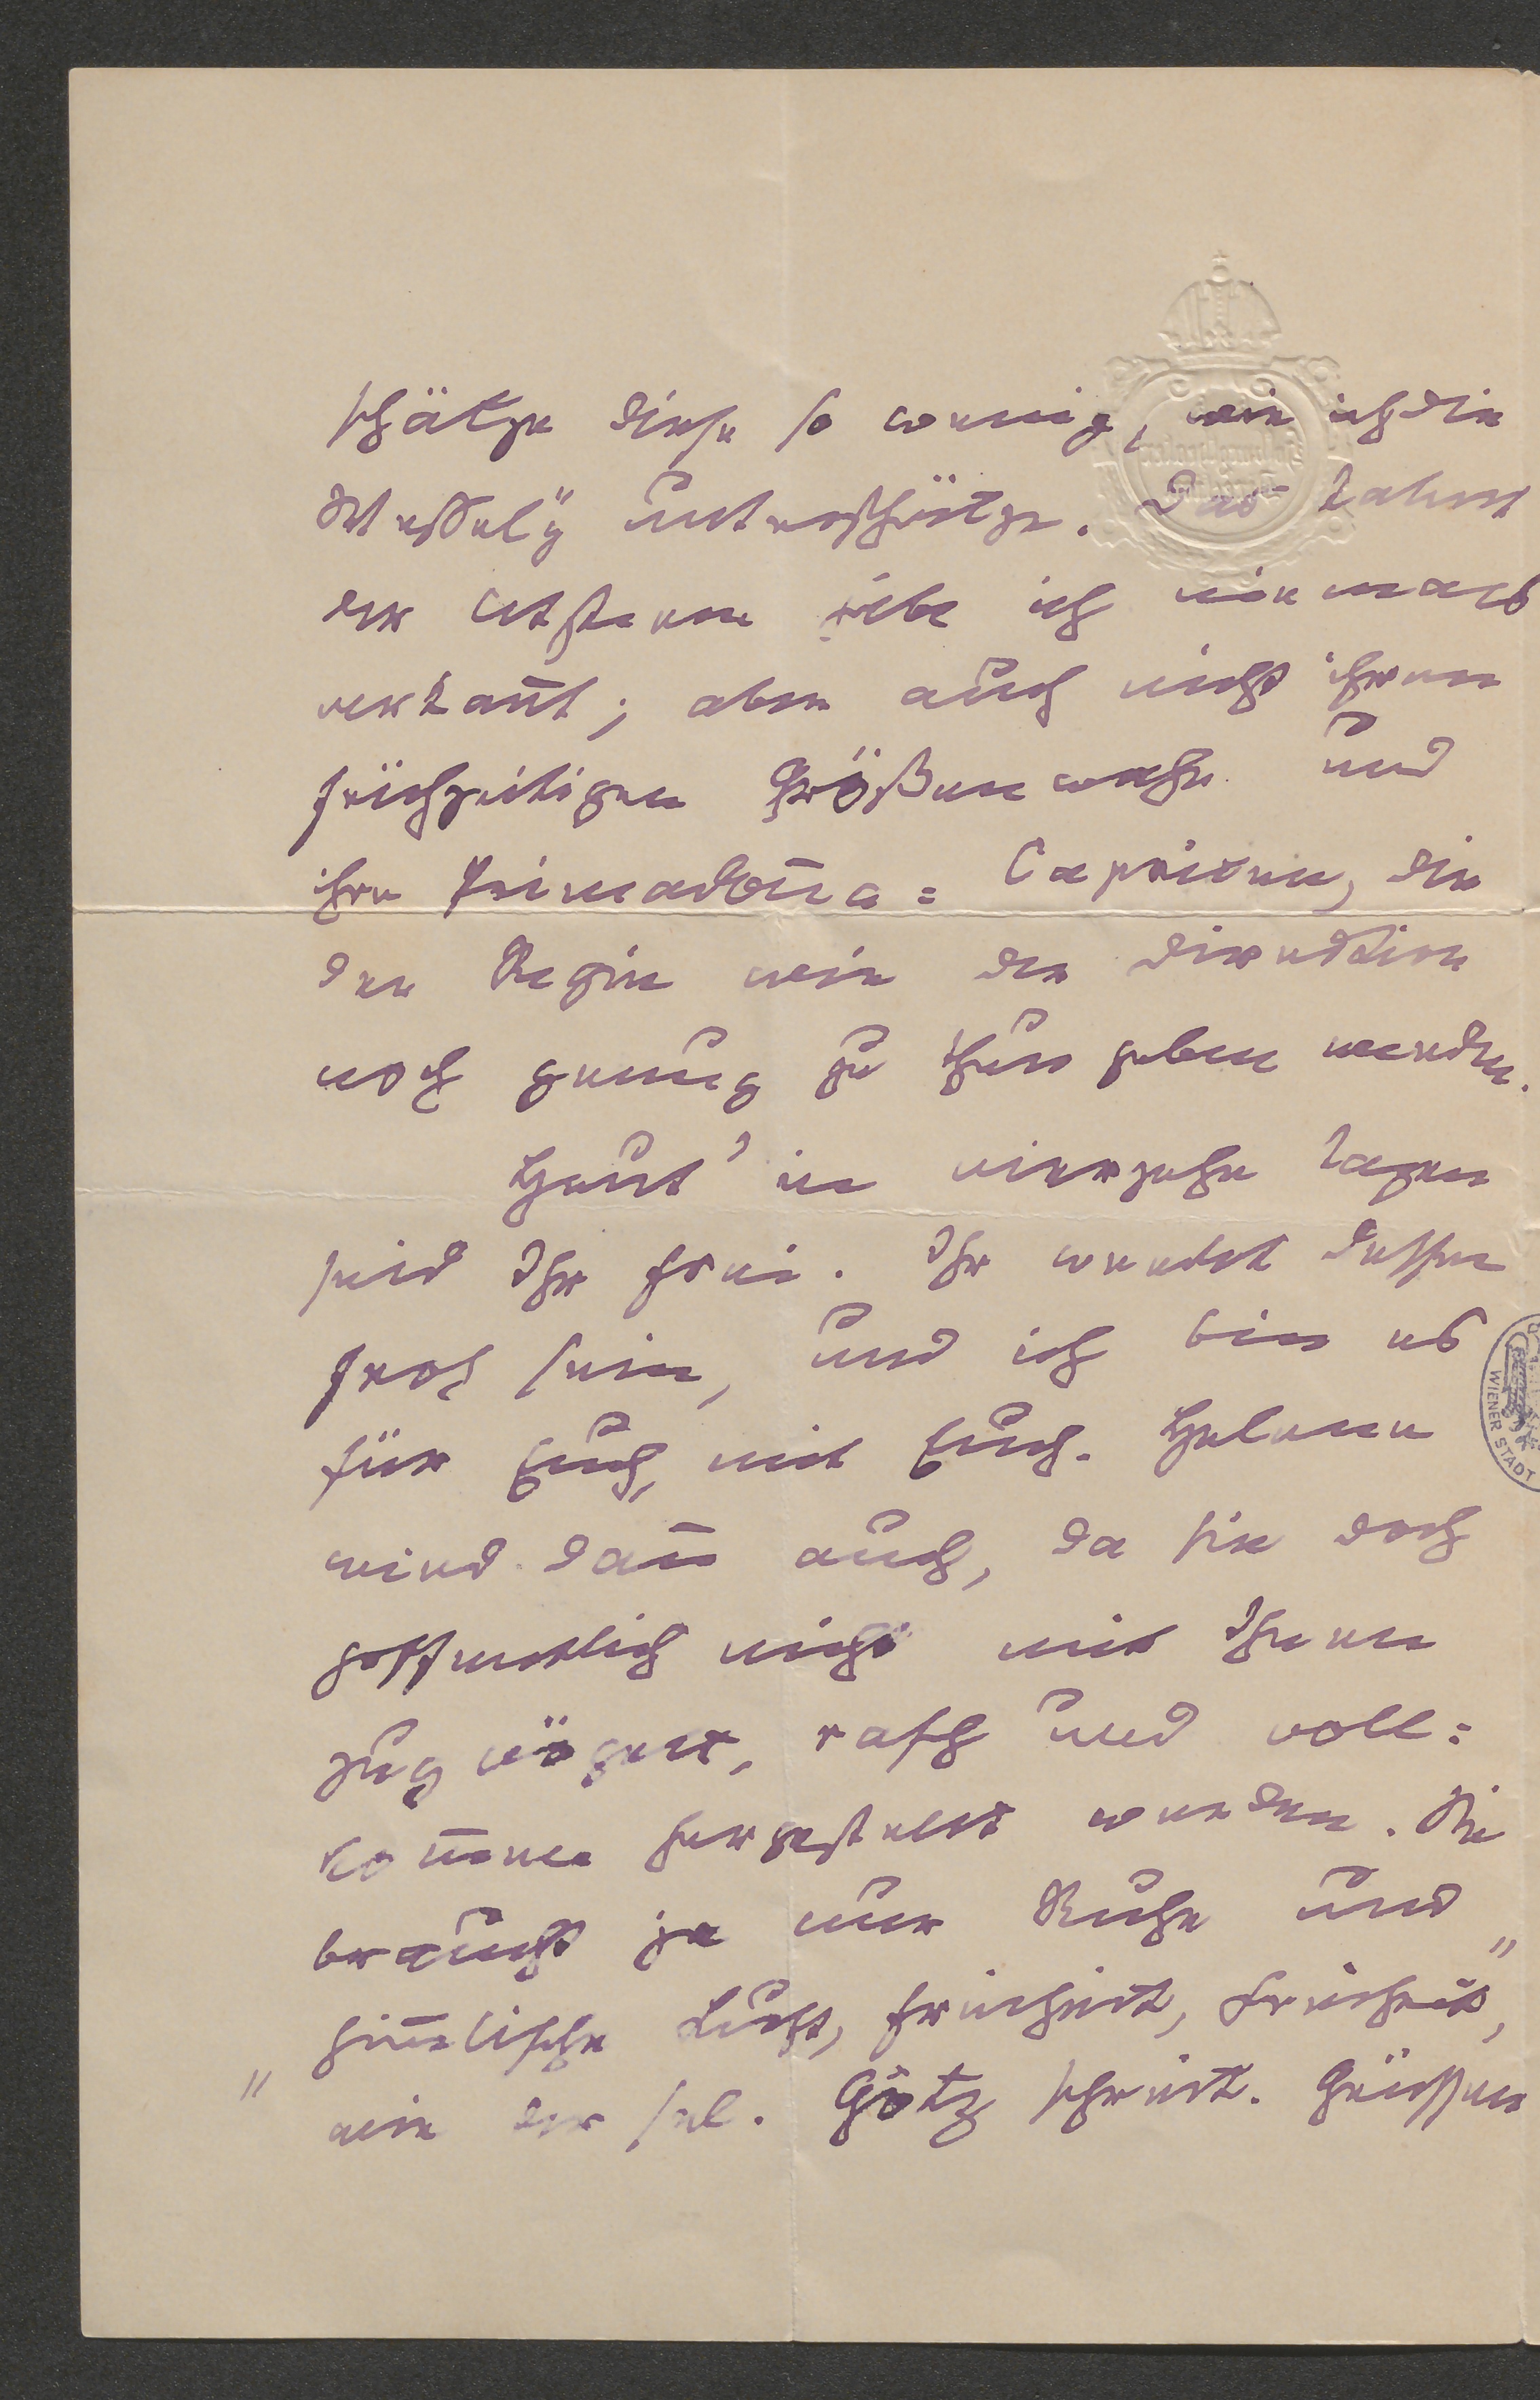 schätze diese so wenig, wie ich die
Wessely unterschätze. Das Talent
der letzteren habe ich niemals
verkant̄; aber auch nicht ihren
frühzeitigen Größenwahn und
ihre Primadon̄a= Capricen, die
der Regie wie der Direktion
noch genug zu thun geben werden.
Heut' in vierzehn Tagen
seid Ihr frei. Ihr werdet dessen
froh sein, und ich bin es
für Euch, mit Euch. Helene
wird dan̄ auch, da sie doch
hoffentlich nicht mit Ihnen
rasch und voll=
kom̄en hergestellt werden. Sie
braucht ja nur Ruhe und
him̄lische Luft, Freiheit, Freiheit",
" wie der sel. Götz schreit. Grüssen
WIENER STADT